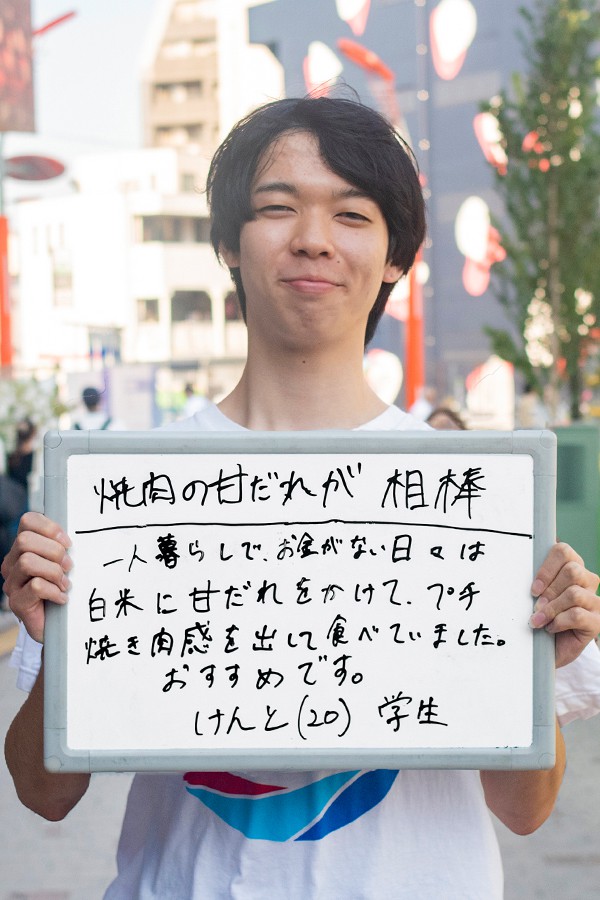 焼肉の甘だれが 相棒
一人暮らしで、お金がない日々は
白米に甘だれをかけて、プチ
焼き肉感を出して食べていました。
おすすめです。
けんと(20) 学生